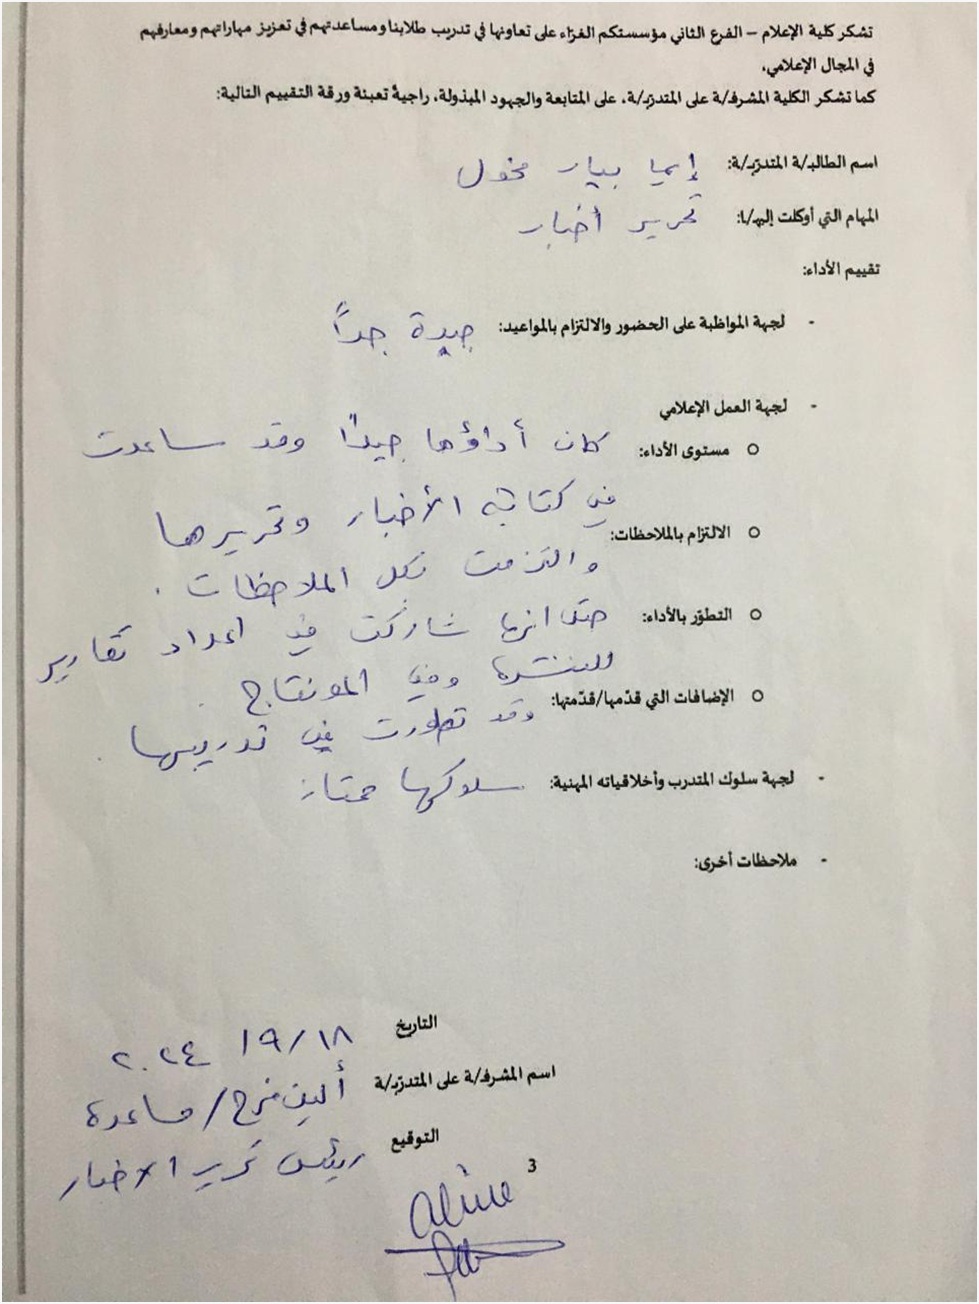 تشكر كلية الإعلام – الفرع الثاني مؤسستكم الغرّاء على تعاونها في تدريب طلابنا ومساعدتهم في تعزيز مهاراتهم ومعارفهم
في المجال الإعلامي.
كما تشكر الكلية المشرفـ/ة على المتدرّبـ/ة، على المتابعة والجهود المبذولة، راجيةً تعبئة ورقة التقييم التالية:
اسم الطالبـ/ة المتدرّبـ/ة: إيما بيار مخول
المهام التي أوكلت إليهـ/ا: تحرير أخبار
تقييم الأداء:
- لجهة المواظبة على الحضور والالتزام بالمواعيد: جيدة جداً
- لجهة العمل الإعلامي
○ مستوى الأداء: كان أداؤها جيداً وقد ساعدت
في كتابة الأخبار وتحريرها
○ الالتزام بالملاحظات:
والتزمت بكل الملاحظات.
○ التطوّر بالأداء: حتى انها شاركت في اعداد تقارير
للنشرة وفي المونتاج.
○ الإضافات التي قدّمها/قدّمتها:
وقد تطورت في تدريبها.
- لجهة سلوك المتدرب وأخلاقياته المهنية: سلوكها ممتاز
- ملاحظات أخرى:
التاريخ ١٨/ ٩/ ٢٠٢٤
اسم المشرفـ/ة على المتدرّبـ/ة ألين فرح / مساعدة
التوقيع رئيس تحرير الاخبار
3
Aline